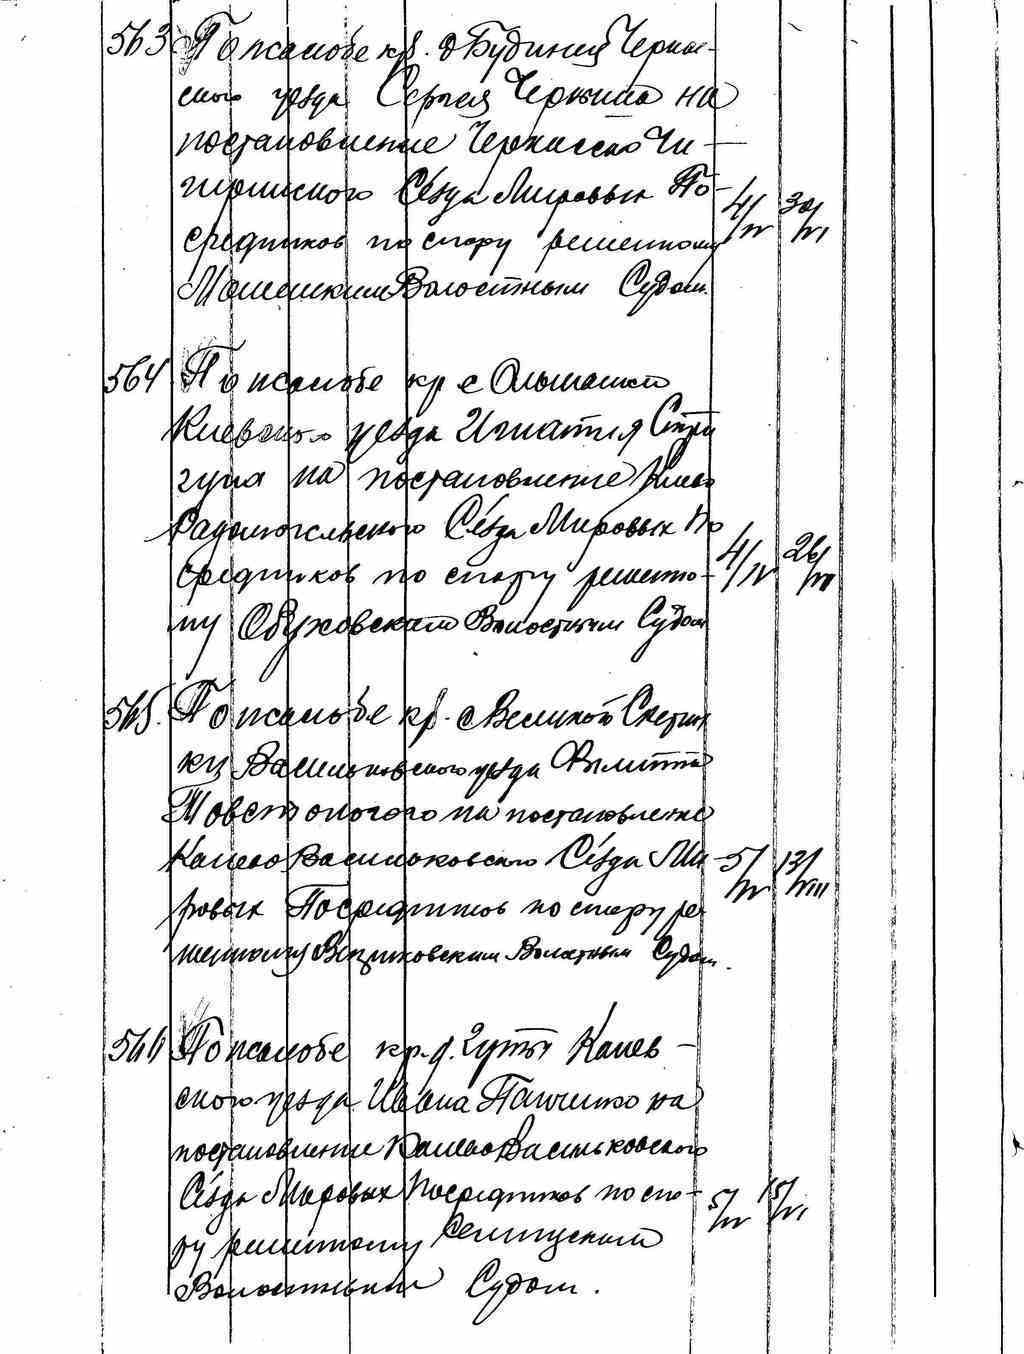 563 По жалобе кр. д Будища Черкас-
ского уезда Сергея Черкина на
постановление Черкасско Чи-
гиринского Сезда Мировых По-
средников по спору решенному 4/IV 30/VI
Мошенским Волостным Судом.
564 По жалобе кр с Ольшанки
Киевского уезда Игнатия Стри
гуна на постановление Киево
Радомысльского Сезда Мировых По
средников по спору решенно- 4/IV 26/VII
му Обуховским Волостным Судом
565. По жалобе кр. с Великой Снетин
ки Васильковского уезда Филиппа
Товстоногого на постановление
Канево Васильковского Сезда Ми- 5/IV 13/VIII
ровых Посредников по спору ре
шенному Веприковским Волостным Судом.
566 По жалобе кр. д. Гуты Канев-
ского уезда Ивана Панченко на
постановление Канево Васильковского
Сезда Мировых Посредников по спо- 5/IV 15/VI
ру решенному
Волостным Судом.